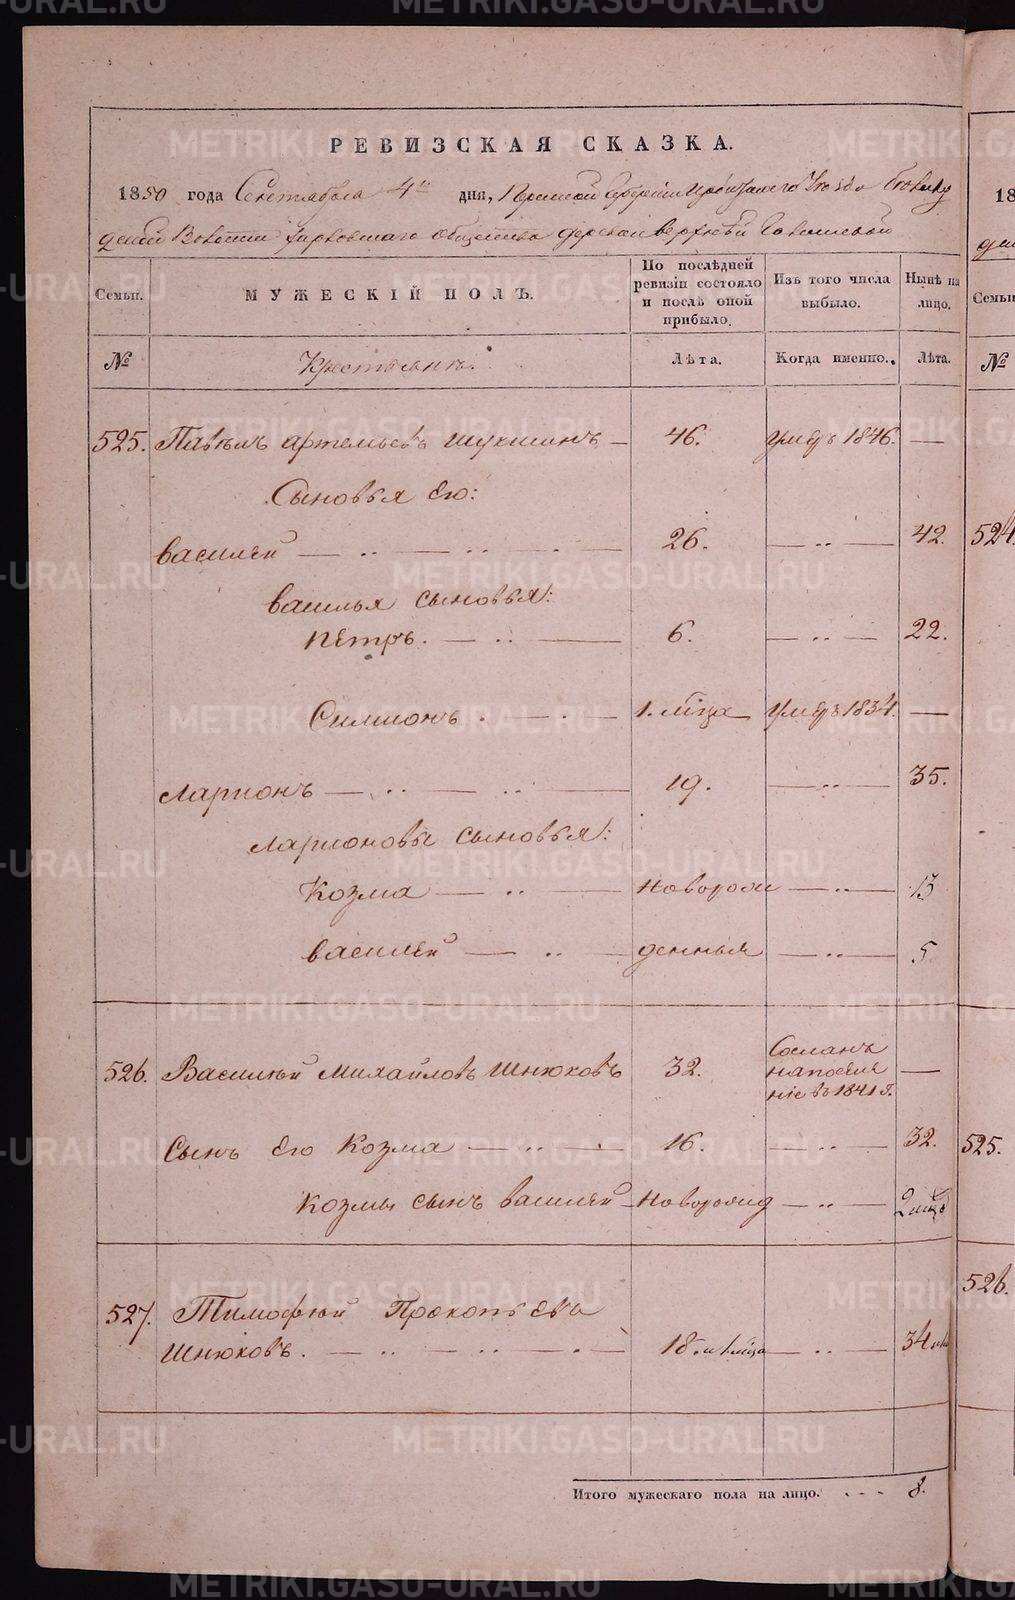 РЕВИЗСКАЯ СКАЗКА.
1850 года Сентября 4го дня, Пермской Губернии Ирбитскаго Уезда
Волости Зарковскаго общества деревни верхней
Семьи.
МУЖЕСКІЙ ПОЛЪ.
По послѣдней ревизіи состояло и послѣ оной прибыло.
Изъ того числа выбыло.
Нынѣ на лицо.
№
Крестьяне.
Лѣта.
Когда именно.
Лѣта.
525. Павелъ артемьевъ шукшинъ — 46. умеръ 1846. —
Сыновья его:
василей — 26. — 42.
василья сыновья:
петръ. — 6. — 22.
Симионъ. — 1. мѣца умеръ 1834. —
Ларионъ — 19. — 35.
Ларионовы сыновья:
Козма — новорож — 13
василей — денныя — 5
526. Василий Михайловъ Шнюковъ 32. Сосланъ на поселе ніе въ 1841 г. —
Сынъ его Козма — 16. — 32.
Козмы сынъ василей — новорожд — 2 мѣц
527. Тимофей Прокопьевъ
Шнюковъ. — 18. и 1 мѣца — 34
Итого мужескаго пола на лицо. 8.
18
Семьи
№
524.
525.
526.
METRIKI.GASO-URAL.RU